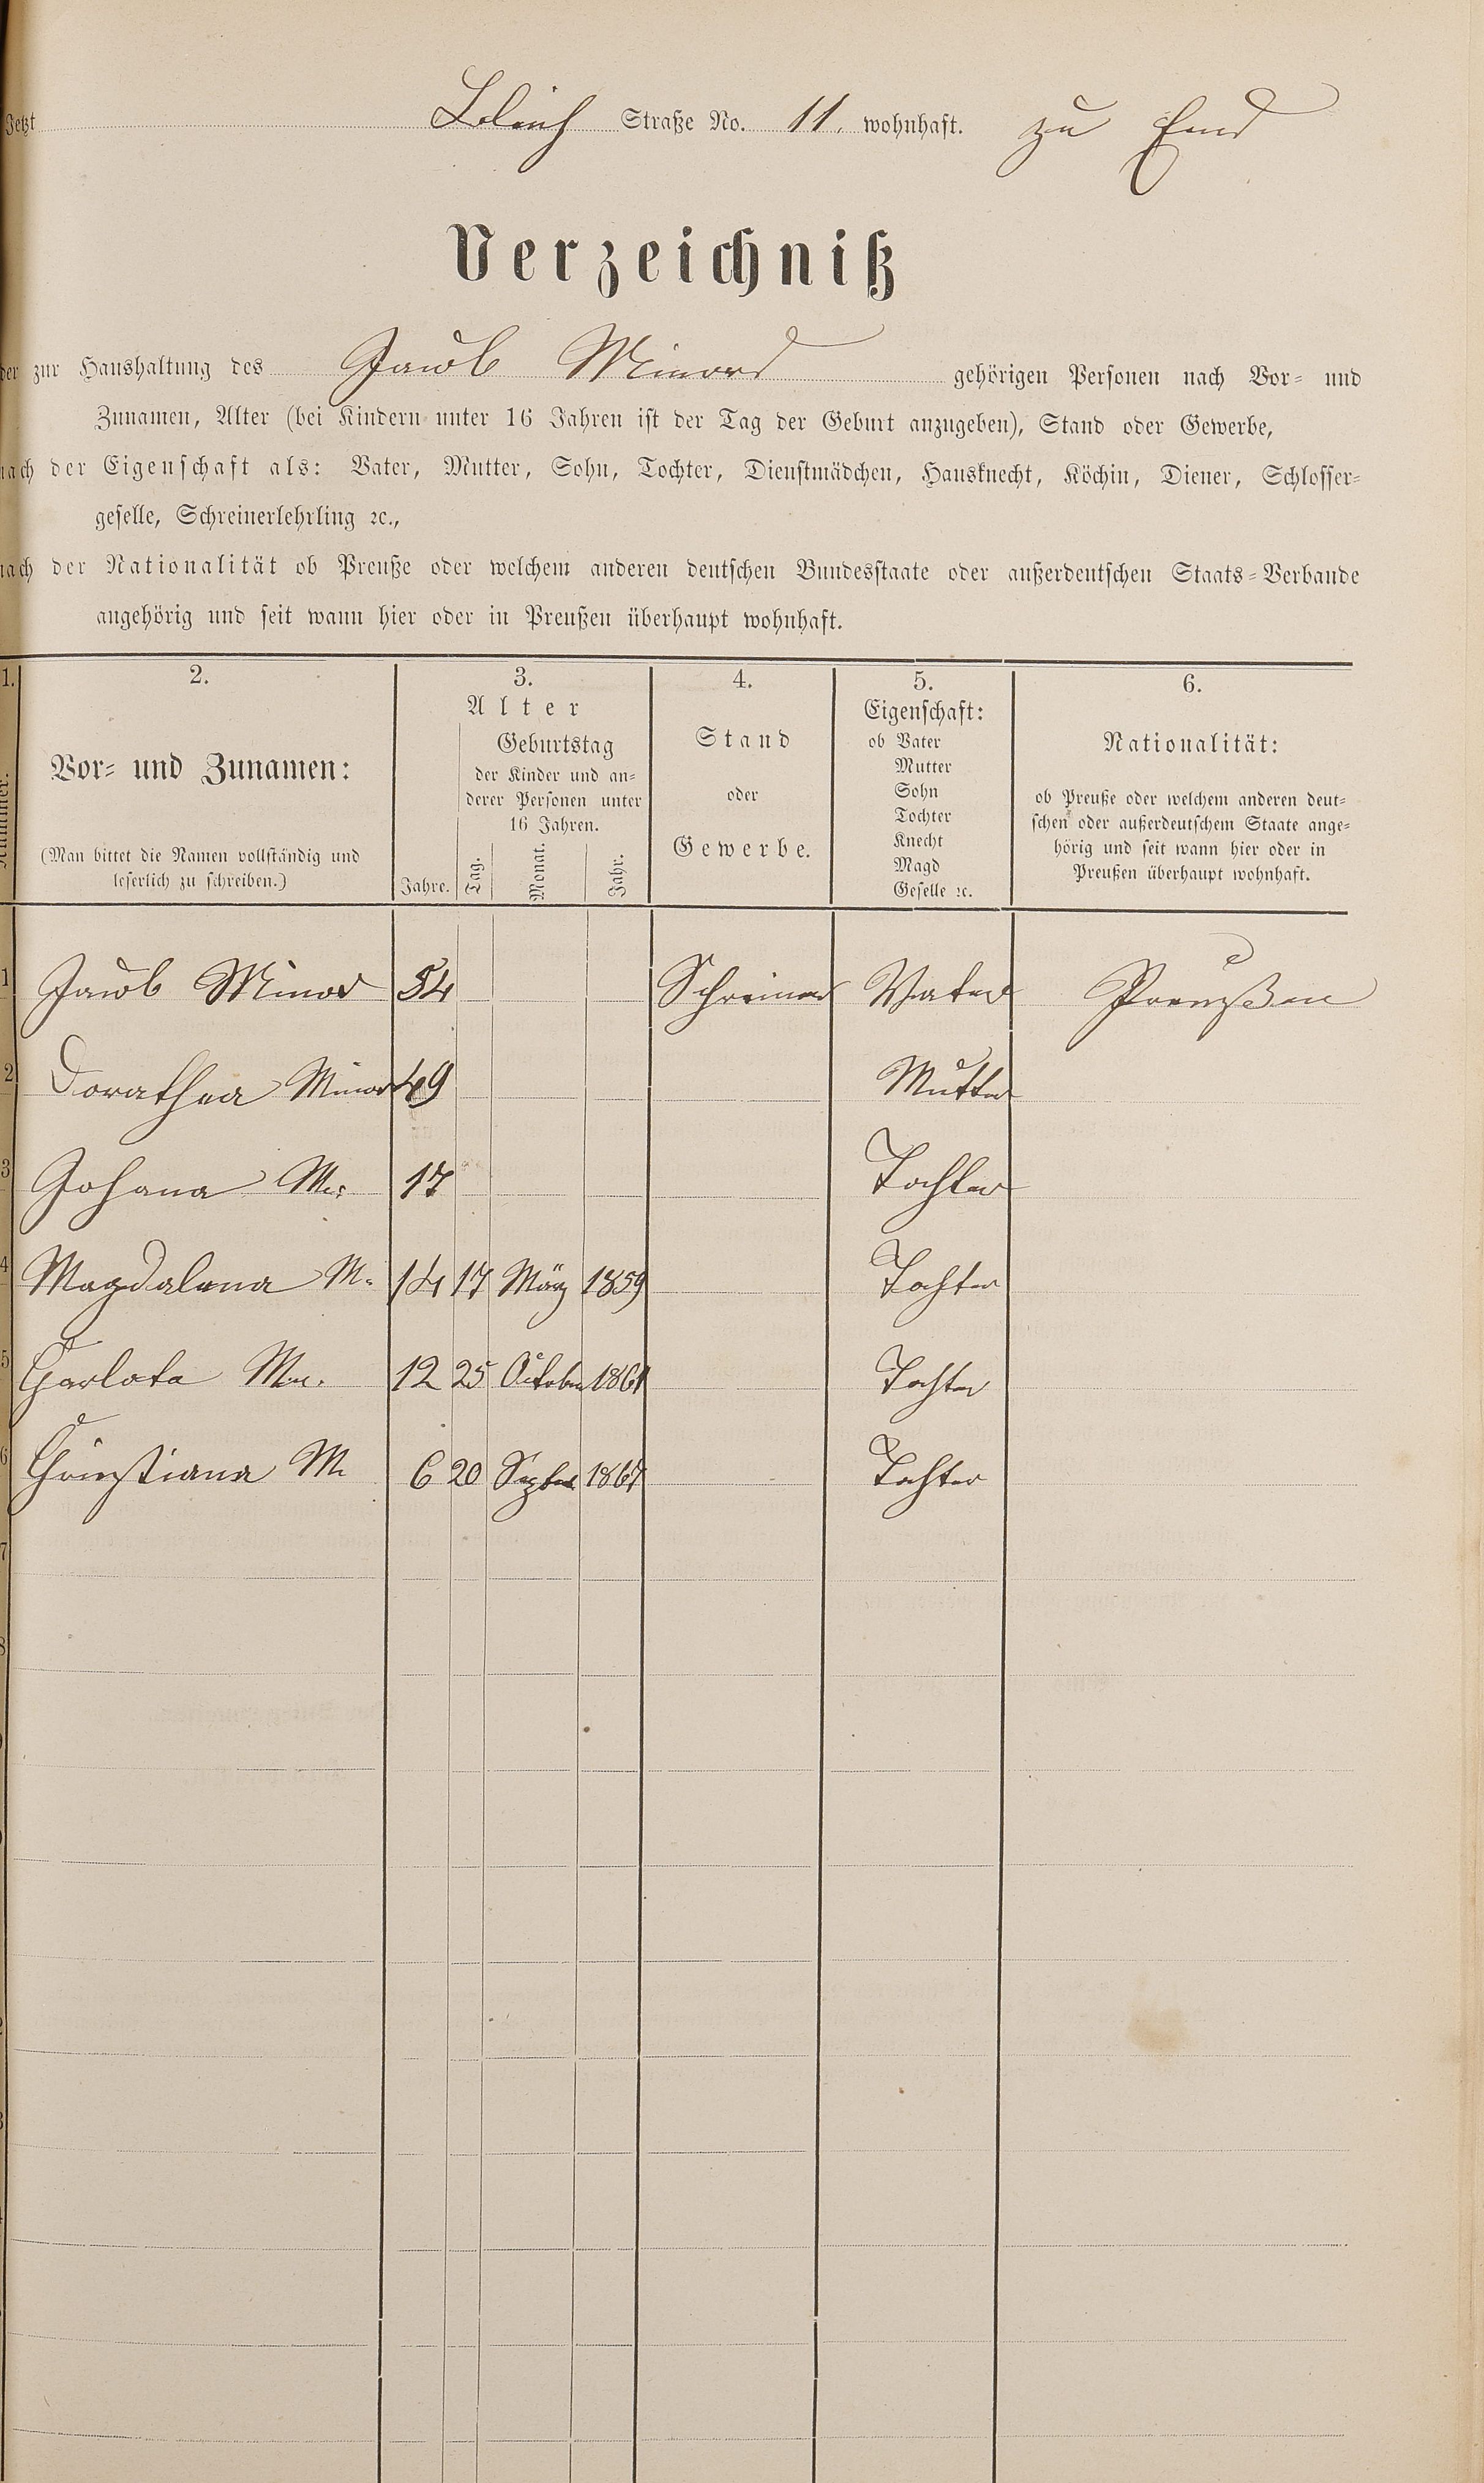 Jetzt Bleich Straße No. 11. wohnhaft. zu Ems
Verzeichniß
der zur Haushaltung des Jacob Minor gehörigen Personen nach Vor- und
Zunamen, Alter (bei Kindern unter 16 Jahren ist der Tag der Geburt anzugeben), Stand oder Gewerbe,
nach der Eigenschaft als: Vater, Mutter, Sohn, Tochter, Dienstmädchen, Hausknecht, Köchin, Diener, Schlosser-
geselle, Schreinerlehrling ꝛc.,
nach der Nationalität ob Preuße oder welchem anderen deutschen Bundesstaate oder außerdeutschen Staats-Verbande
angehörig und seit wann hier oder in Preußen überhaupt wohnhaft.
1. 2. 3. 4. 5. 6.
Nummer.
Vor- und Zunamen:
(Man bittet die Namen vollständig und
leserlich zu schreiben.)
Alter
Jahre.
Geburtstag
der Kinder und an-
derer Personen unter
16 Jahren.
Tag. Monat. Jahr.
Stand
oder
Gewerbe.
Eigenschaft:
ob Vater
Mutter
Sohn
Tochter
Knecht
Magd
Geselle ꝛc.
Nationalität:
ob Preuße oder welchem anderen deut-
schen oder außerdeutschem Staate ange-
hörig und seit wann hier oder in
Preußen überhaupt wohnhaft.
1 Jacob Minor 54 Schreiner Vater Preußen
2 Dorathea Minor 49 Mutter
3 Johana M. 17 Tochter
4 Magdalena M. 14 17 März 1859 Tochter
5 Charlota M. 12 25 October 1861 Tochter
6 Christiana M 6 20 Septem 1867 Tochter
7
8